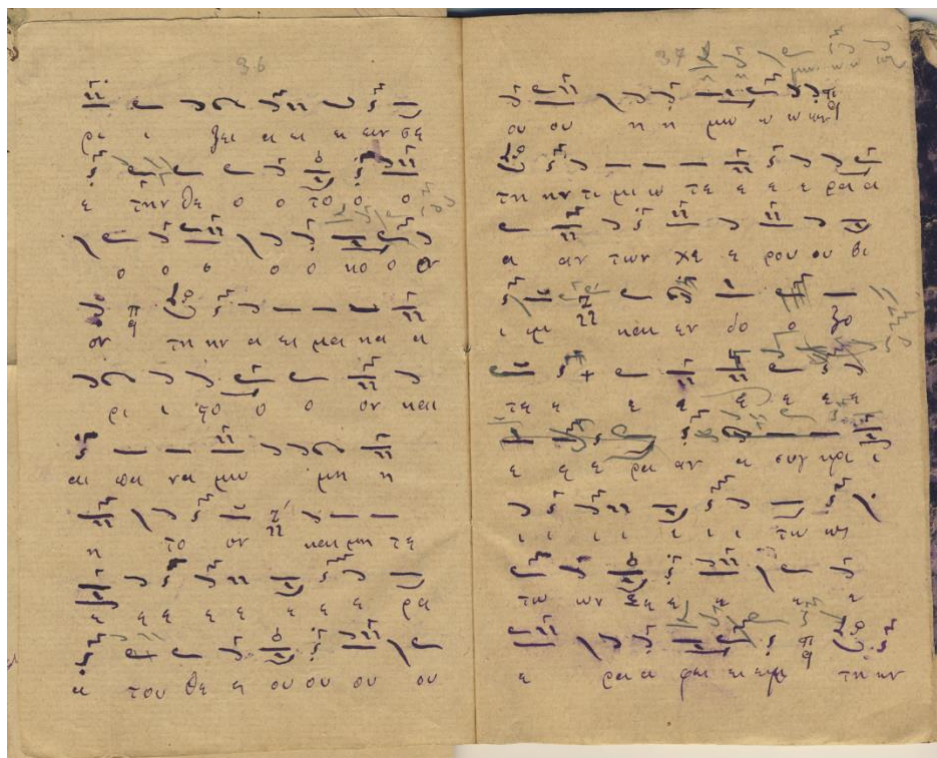 36
ρι ι ζει ει ει ει ειν σε
ε την θε ο ο το ο ο
ο ο ο ο ο κο ο ο
ον τη ην α ει μα κα α
ρι ι το ο ο ον και
αι πα να μω μη η
η το ον και μη τε
ε ε ε ε ε ε ε ε ρα
α του θε ε ου ου ου ου
37
ου ου η η μω ω ω ων
τη ην τι μι ω τε ε ε ε ρα α
α αν των χε ε ρου ου βι
ι μ και εν δο ο ξο
τε ε ε ε ε ε ε ε
ε ε ε ρα αν α συγ κρι ι
ι ι ι ι ι τω ως
τω ων σε ε ε ε
ε ρα α φει ει ειμ τη ην